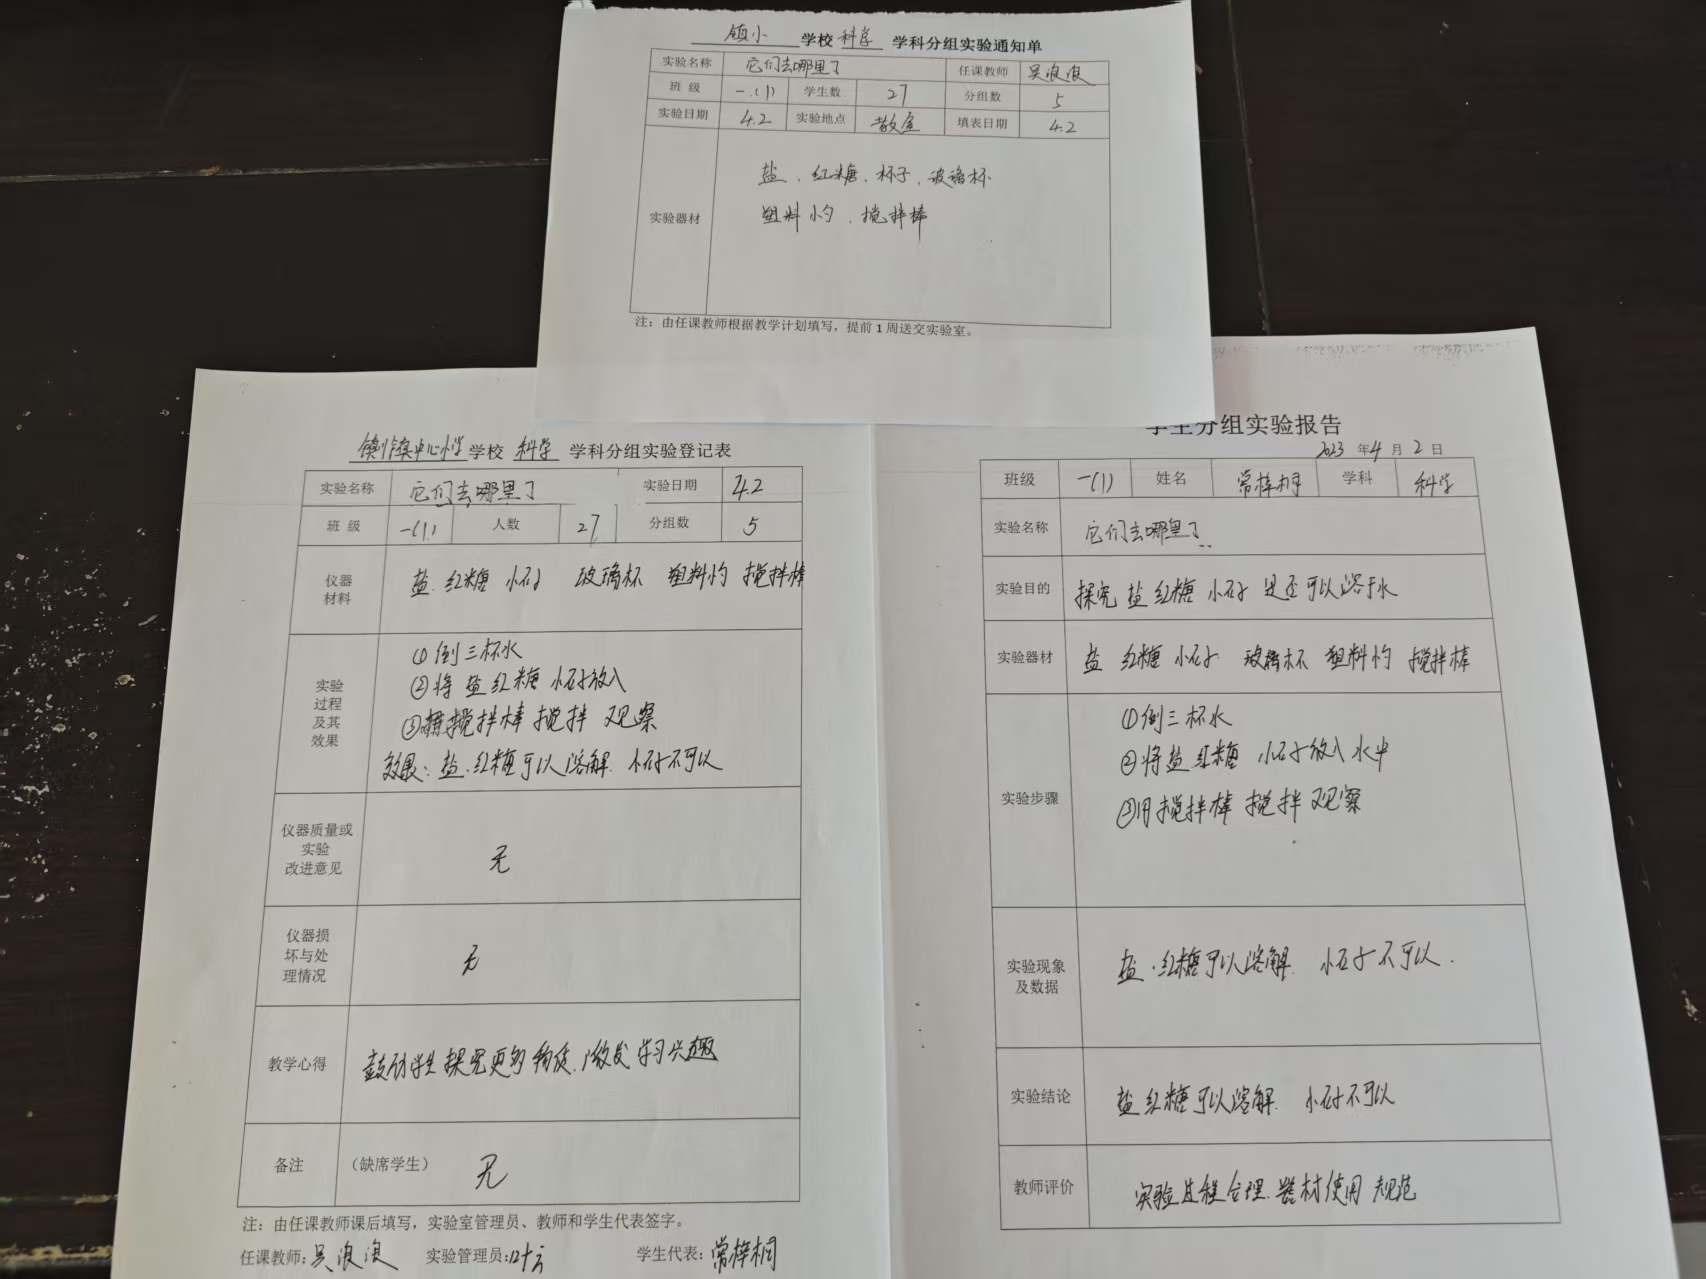 镇小 学校 科学 学科分组实验通知单
实验名称 它们去哪里了 任课教师 吴浪浪
班 级 一.(1) 学生数 27 分组数 5
实验日期 4.2 实验地点 教室 填表日期 4.2
实验器材
盐、红糖、杯子、玻璃杯
塑料小勺、搅拌棒
注：由任课教师根据教学计划填写，提前1周送交实验室。
镇中心小学 学校 科学 学科分组实验登记表
实验名称 它们去哪里了 实验日期 4.2
班 级 一(1) 人数 27 分组数 5
仪器
材料
盐 红糖 小石子 玻璃杯 塑料勺 搅拌棒
实验
过程
及其
效果
①倒三杯水
②将盐红糖 小石子放入
③搅拌棒 搅拌 观察
效果：盐、红糖可以溶解 小石子不可以
仪器质量或
实验
改进意见
无
仪器损
坏与处
理情况
无
教学心得 鼓励学生探究更多物质，激发学习兴趣
备注 （缺席学生） 无
注：由任课教师课后填写，实验室管理员、教师和学生代表签字。
任课教师：吴浪浪 实验管理员： 学生代表：常梓桐
学生分组实验报告
2023 年 4 月 2 日
班级 一(1) 姓名 常梓桐 学科 科学
实验名称 它们去哪里了
实验目的 探究 盐 红糖 小石子 是否可以溶于水
实验器材 盐 红糖 小石子 玻璃杯 塑料勺 搅拌棒
实验步骤
①倒三杯水
②将盐 红糖 小石子放入水中
③用搅拌棒 搅拌 观察
实验现象
及数据
盐、红糖可以溶解 小石子不可以.
实验结论 盐 红糖可以溶解 小石子不可以
教师评价 实验过程合理.器材使用 规范